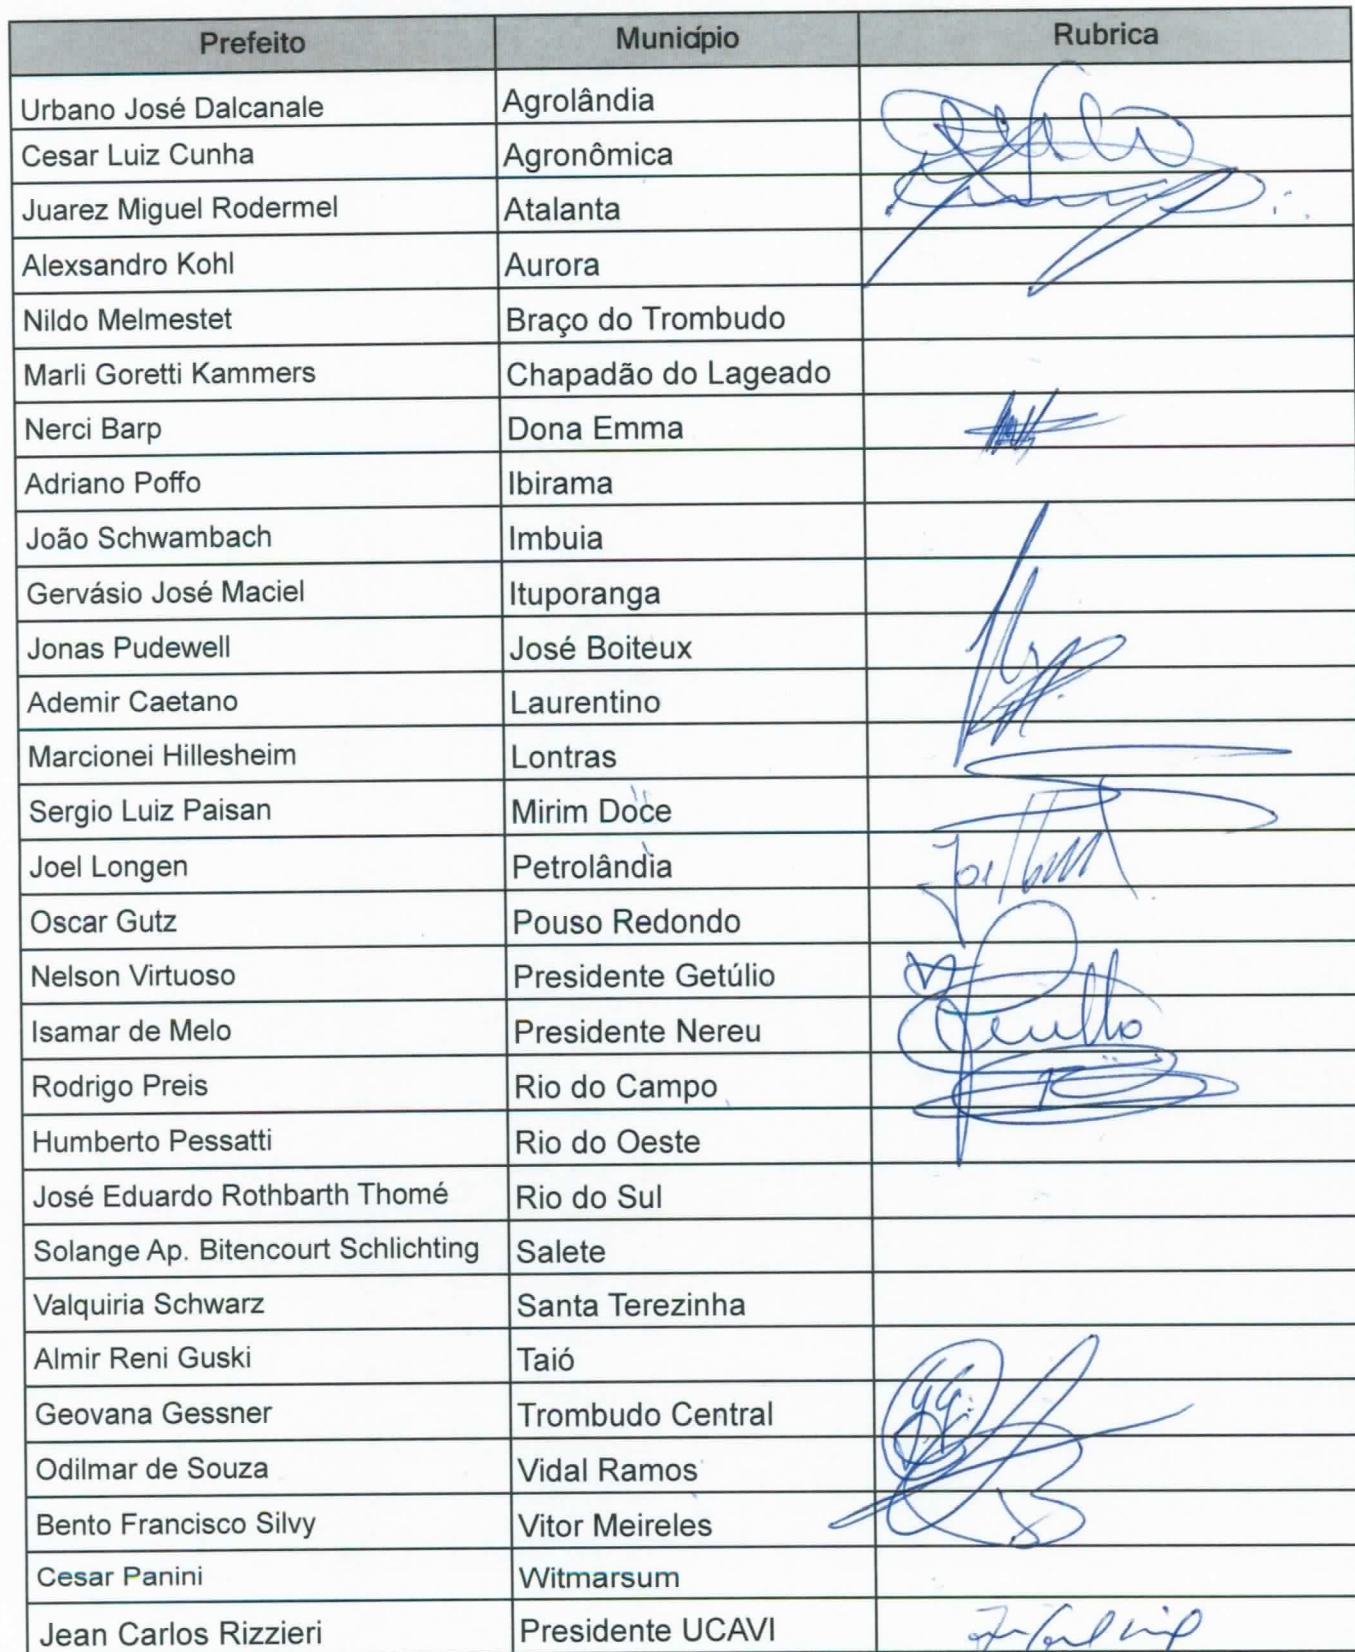 Prefeito Município Rubrica
Urbano José Dalcanale Agrolândia
Cesar Luiz Cunha Agronômica
Juarez Miguel Rodermel Atalanta
Alexsandro Kohl Aurora
Nildo Melmestet Braço do Trombudo
Marli Goretti Kammers Chapadão do Lageado
Nerci Barp Dona Emma
Adriano Poffo Ibirama
João Schwambach Imbuia
Gervásio José Maciel Ituporanga
Jonas Pudewell José Boiteux
Ademir Caetano Laurentino
Marcionei Hillesheim Lontras
Sergio Luiz Paisan Mirim Doce
Joel Longen Petrolândia
Oscar Gutz Pouso Redondo
Nelson Virtuoso Presidente Getúlio
Isamar de Melo Presidente Nereu
Rodrigo Preis Rio do Campo
Humberto Pessatti Rio do Oeste
José Eduardo Rothbarth Thomé Rio do Sul
Solange Ap. Bitencourt Schlichting Salete
Valquiria Schwarz Santa Terezinha
Almir Reni Guski Taió
Geovana Gessner Trombudo Central
Odilmar de Souza Vidal Ramos
Bento Francisco Silvy Vitor Meireles
Cesar Panini Witmarsum
Jean Carlos Rizzieri Presidente UCAVI